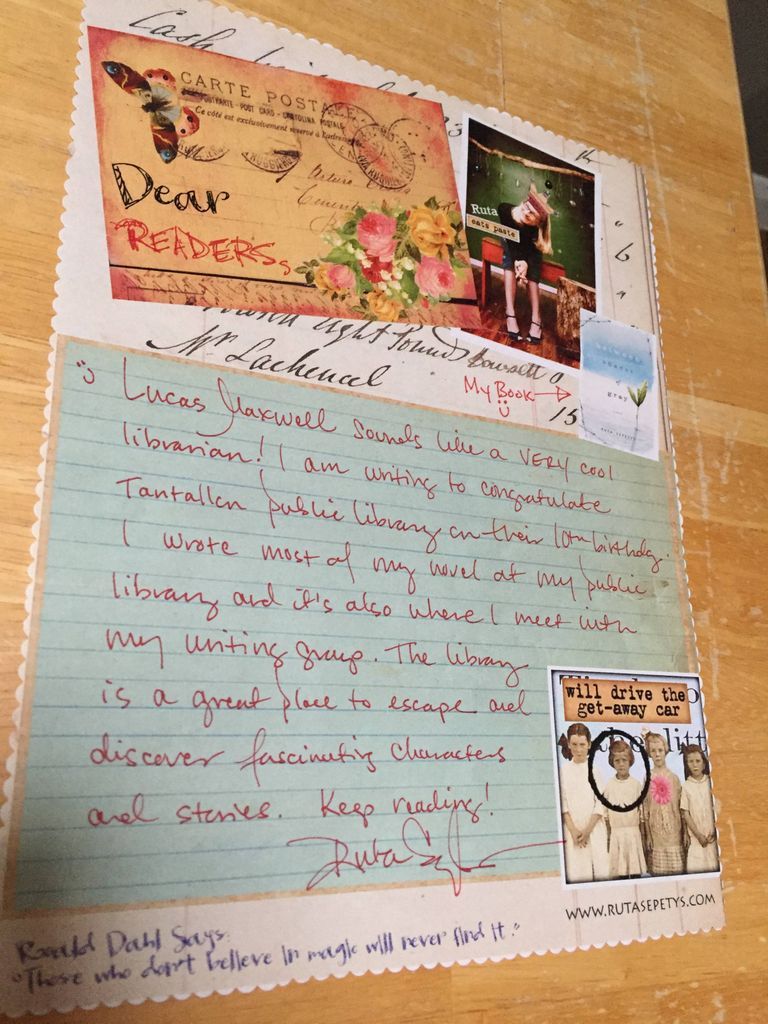 Cash
CARTE POSTALE
POSTKARTE - POST CARD - CARTOLINA POSTALE
Ce côté est exclusivement réservé à l'adresse
Dear
READERS,
Ruta
eats paste
Eight Pounds
Mr Lachencal
My Book →
shades
of
gray
15
Lucas Maxwell sounds like a VERY cool
librarian! I am writing to congratulate
Tantallon public library on their 10th birthday.
I wrote most of my novel at my public
library and it's also where I meet with
my writing group. The library
is a great place to escape and
discover fascinating characters
and stories. Keep reading!
Ruta
will drive the
get-away car
WWW.RUTASEPETYS.COM
Roald Dahl Says:
"Those who don't believe in magic will never find it."